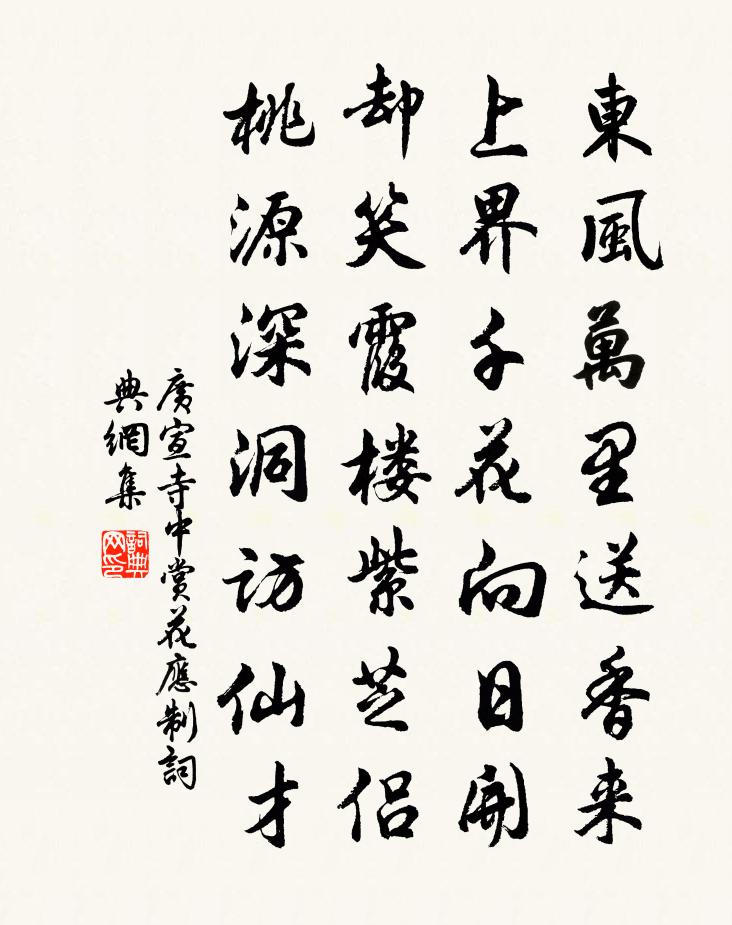 東風萬里送香来
上界千花向日開
却笑霞楼紫芝侶
桃源深洞訪仙才
廣宣寺中賞花應制詞
典網集
詞典
网印